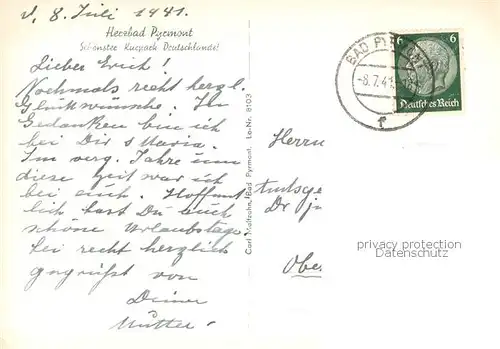 d. 8. Juli 1941.
Herzbad Pyrmont
Schönster Kurpark Deutschlands!
Lieber Erich!
Nochmals recht herzl.
Glückwünsche. In
Gedanken bin ich
bei Dir u Maria.
Im verg. Jahre um
diese Zeit war ich
bei euch. Hoffent
lich hast Du auch
schöne Urlaubstage.
Sei recht herzlich
gegrüßt von
Deiner
Mutter.
Carl Maltzahn, Bad Pyrmont. Lo-Nr. 8103
BAD PYRMONT
-8.7.41
f
6 6
Deutsches Reich
Herrn
Amtsge
Dr ju
Ober
privacy protection
Datenschutz